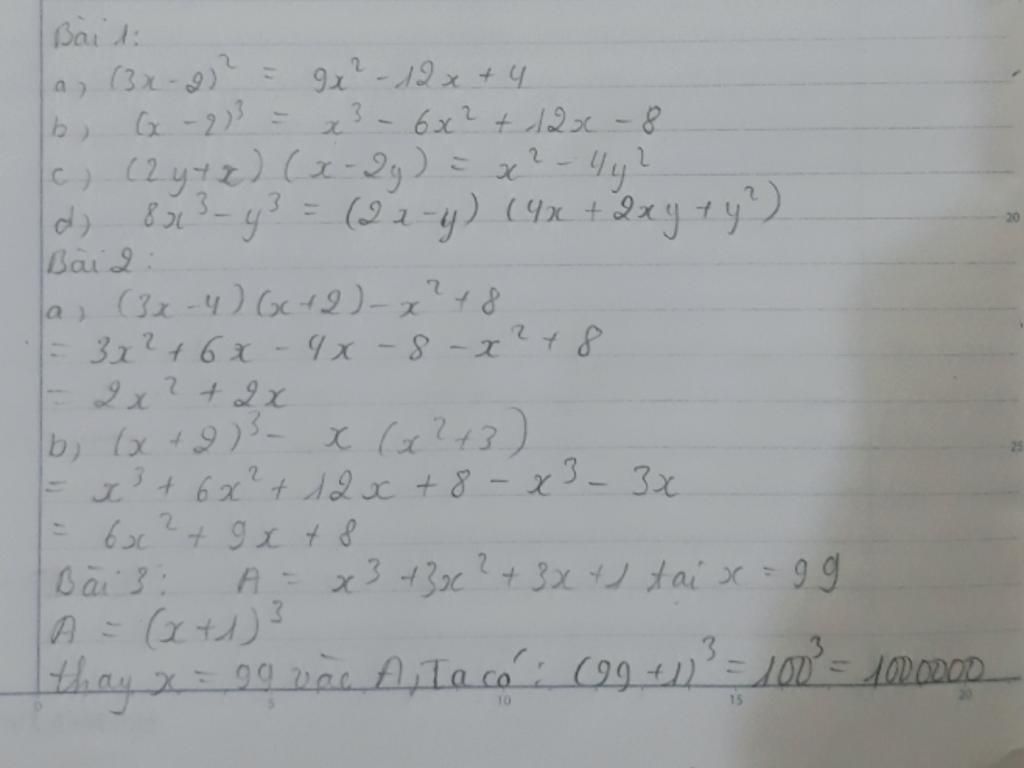 Bài 1:
a, (3x - 2)² = 9x² - 12x + 4
b, (x - 2)³ = x³ - 6x² + 12x - 8
c, (2y + x) (x - 2y) = x² - 4y²
d, 8x³ - y³ = (2x - y) (4x + 2xy + y²)
20
Bài 2:
a, (3x - 4) (x + 2) - x² + 8
= 3x² + 6x - 4x - 8 - x² + 8
= 2x² + 2x
b, (x + 2)³ - x (x² + 3)
25
= x³ + 6x² + 12x + 8 - x³ - 3x
= 6x² + 9x + 8
Bài 3: A = x³ + 3x² + 3x + 1 tai x = 99
A = (x + 1)³
thay x = 99 vào A, Ta có: (99 + 1)³ = 100³ = 1000000
0 5 10 15 20